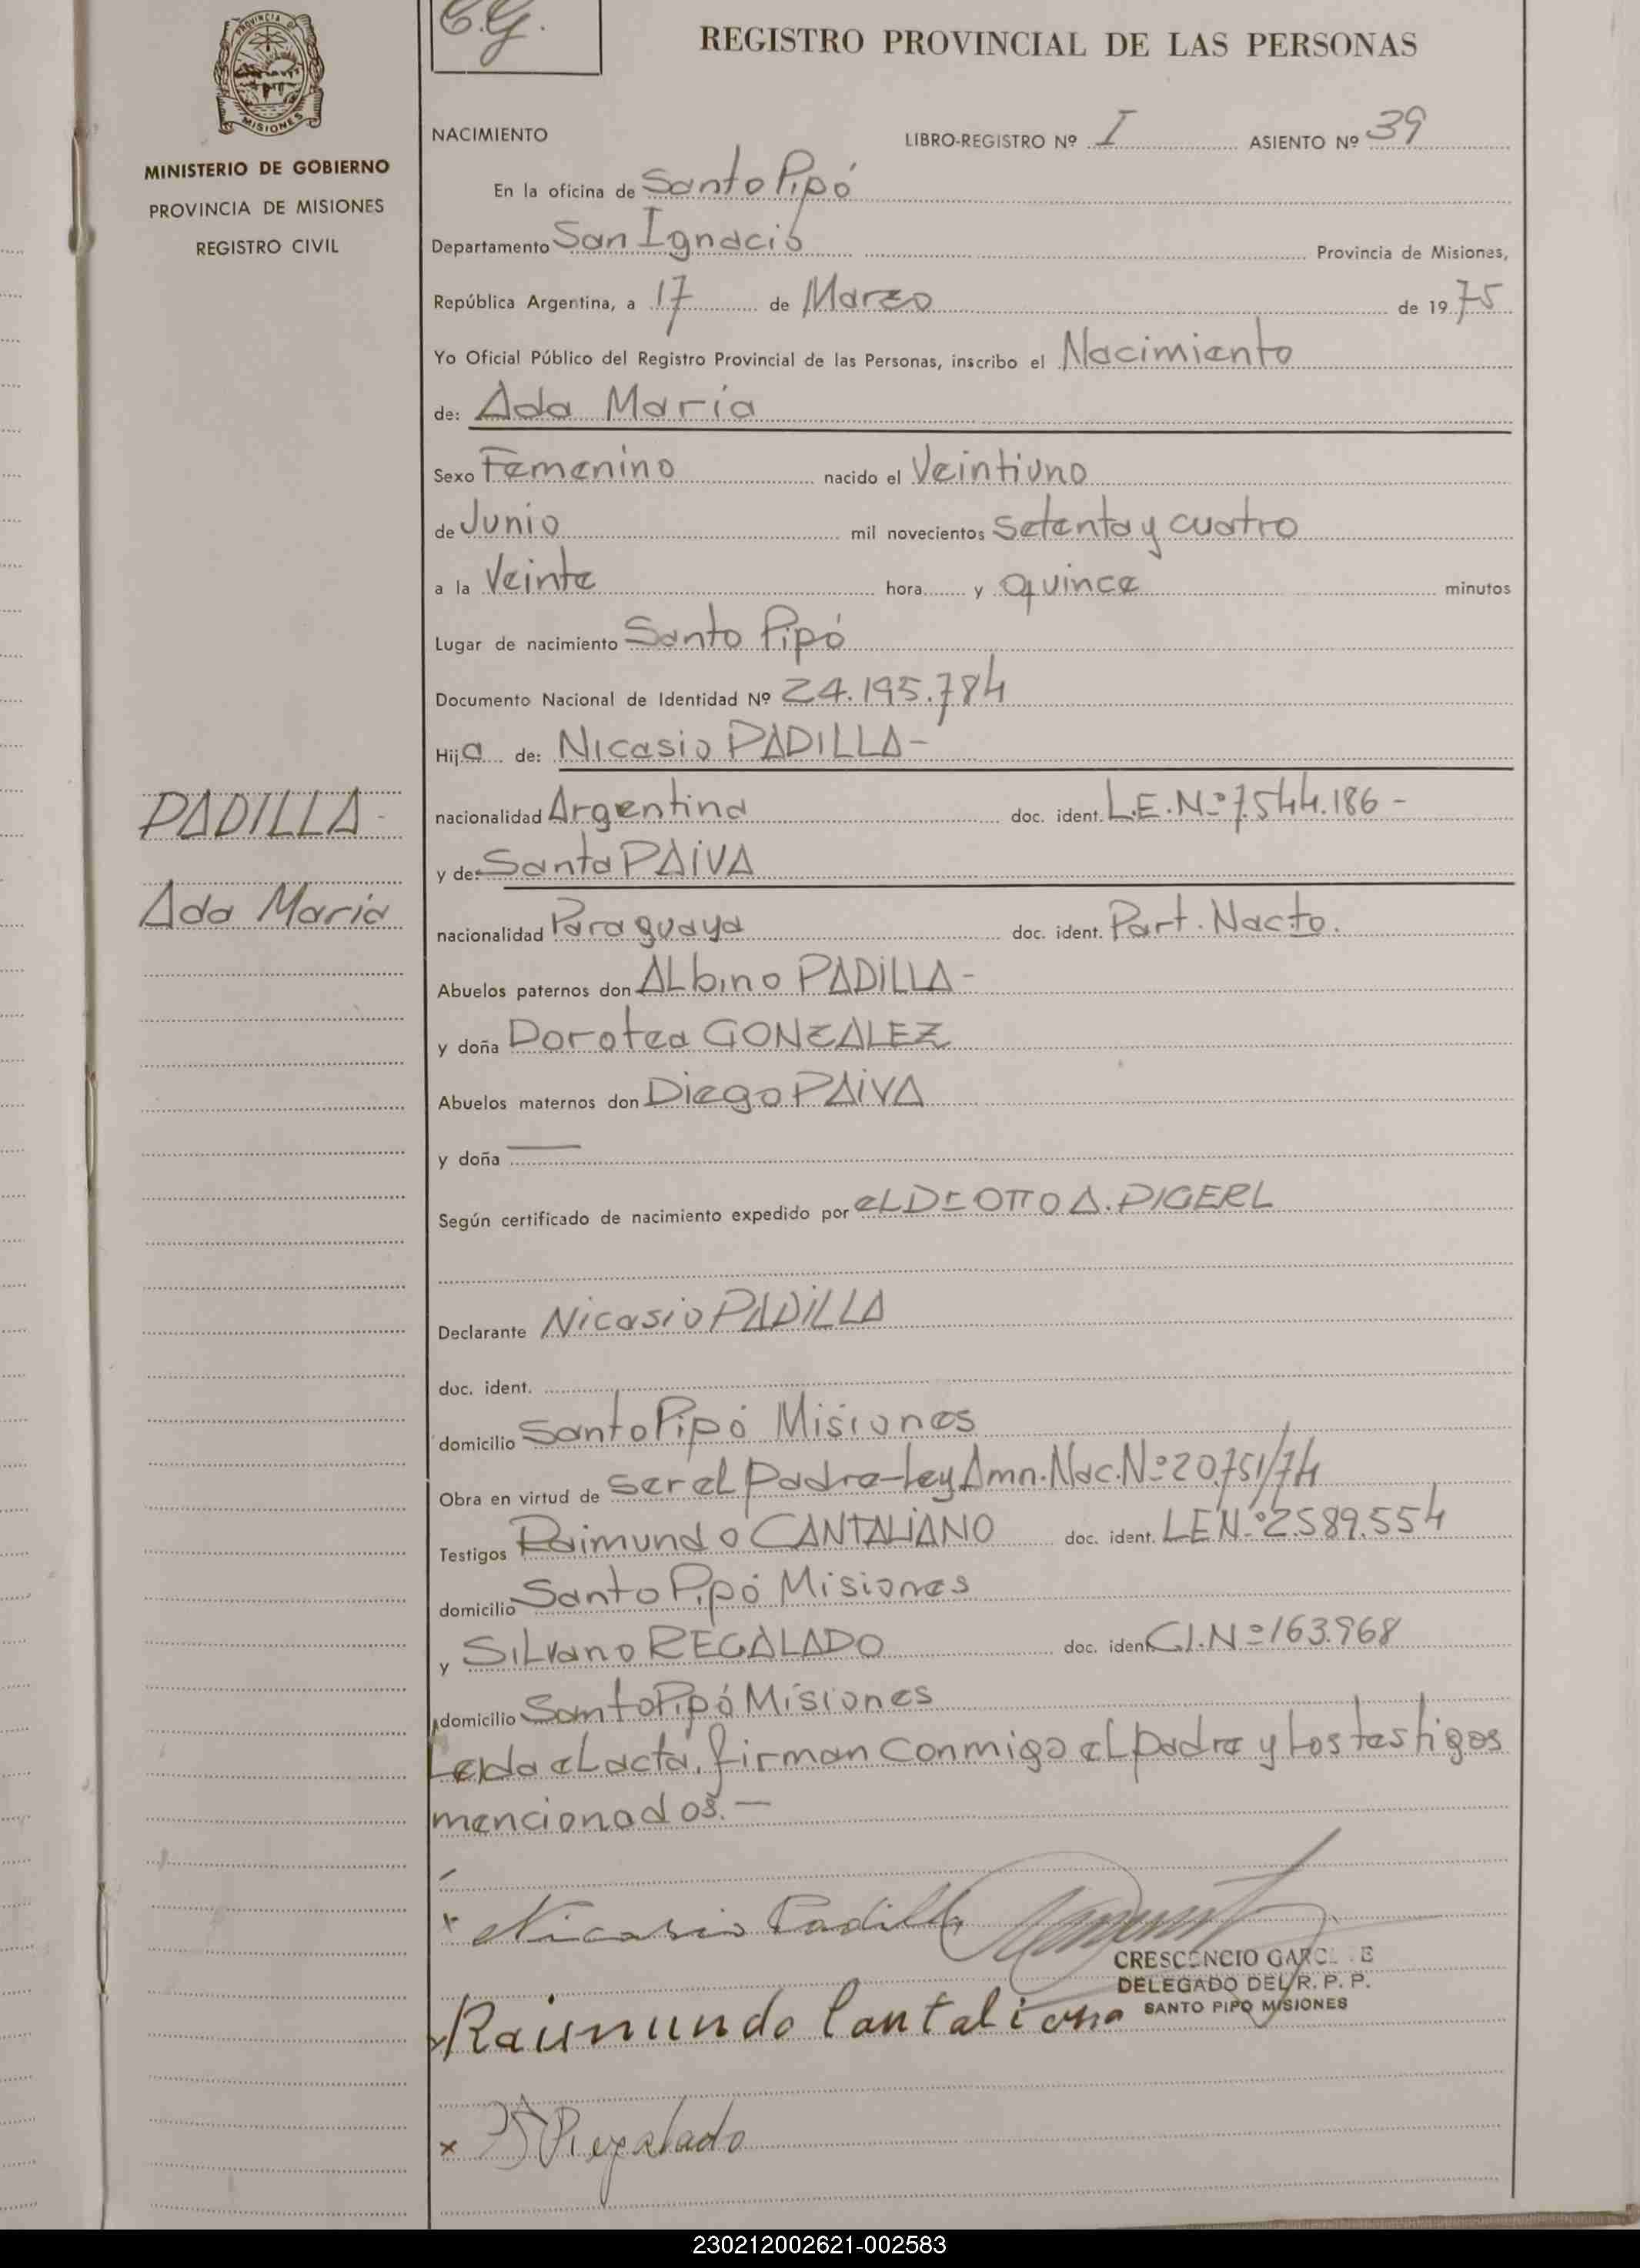 C.G.
REGISTRO PROVINCIAL DE LAS PERSONAS
PROVINCIA DE
MISIONES
MINISTERIO DE GOBIERNO
PROVINCIA DE MISIONES
REGISTRO CIVIL
NACIMIENTO LIBRO-REGISTRO Nº I ASIENTO Nº 39
En la oficina de Santo Pipó
Departamento San Ignacio Provincia de Misiones,
República Argentina, a 17 de Marzo de 1975
Yo Oficial Público del Registro Provincial de las Personas, inscribo el Nacimiento
de: Ada María
Sexo Femenino nacido el Veintiuno
de Junio mil novecientos setenta y cuatro
a la Veinte hora y quince minutos
Lugar de nacimiento Santo Pipó
Documento Nacional de Identidad Nº 24.195.784
Hija de: Nicasio PADILLA-
PADILLA-
nacionalidad Argentina doc. ident. L.E.Nº 7.544.186-
y de: Santa PAIVA
Ada María
nacionalidad Paraguaya doc. ident. Part. Nacto.
Abuelos paternos don ALbino PADILLA-
y doña Dorotea GONZALEZ
Abuelos maternos don Diego PAIVA
y doña —
Según certificado de nacimiento expedido por eL Dr OTTO A. PIGERL
Declarante Nicasio PADILLA
doc. ident.
domicilio Santo Pipó Misiones
Obra en virtud de ser el padre-Ley Amn. Nac. Nº 20.751/74
Testigos Raimundo CANTALIANO doc. ident. LE Nº 2.589.554
domicilio Santo Pipó Misiones
y SiLvano REGALADO doc. ident. C.I. Nº 163.968
domicilio Santo Pipó Misiones
Leida eL acta, firman conmigo eL padre y Los testigos
mencionados.—
x Nicasio Padilla
CRESCENCIO
DELEGADO DEL R. P. P.
SANTO PIPO MISIONES
x Raimundo Cantaliano
x Regalado
230212002621-002583